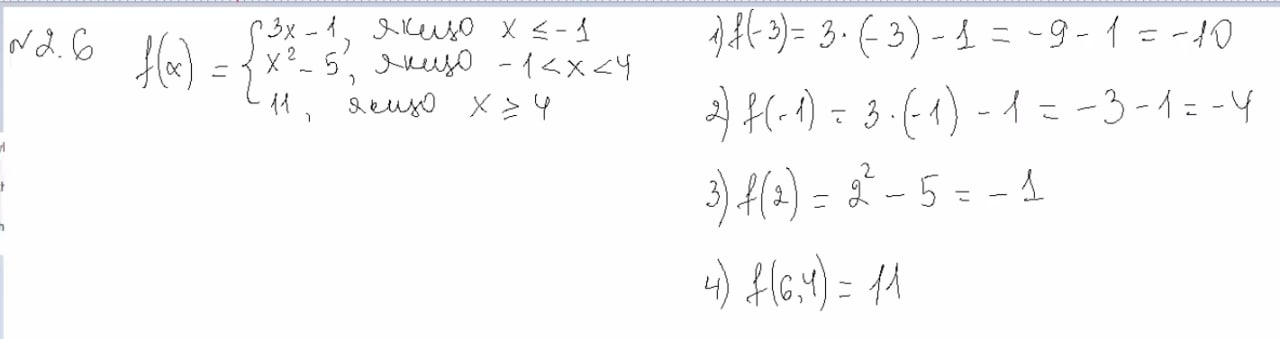 №2.6 f(x) = { 3x - 1, якщо x ≤ -1
x² - 5, якщо -1 < x < 4
11, якщо x ≥ 4
1) f(-3) = 3·(-3) - 1 = -9 - 1 = -10
2) f(-1) = 3·(-1) - 1 = -3 - 1 = -4
3) f(2) = 2² - 5 = -1
4) f(6,4) = 11